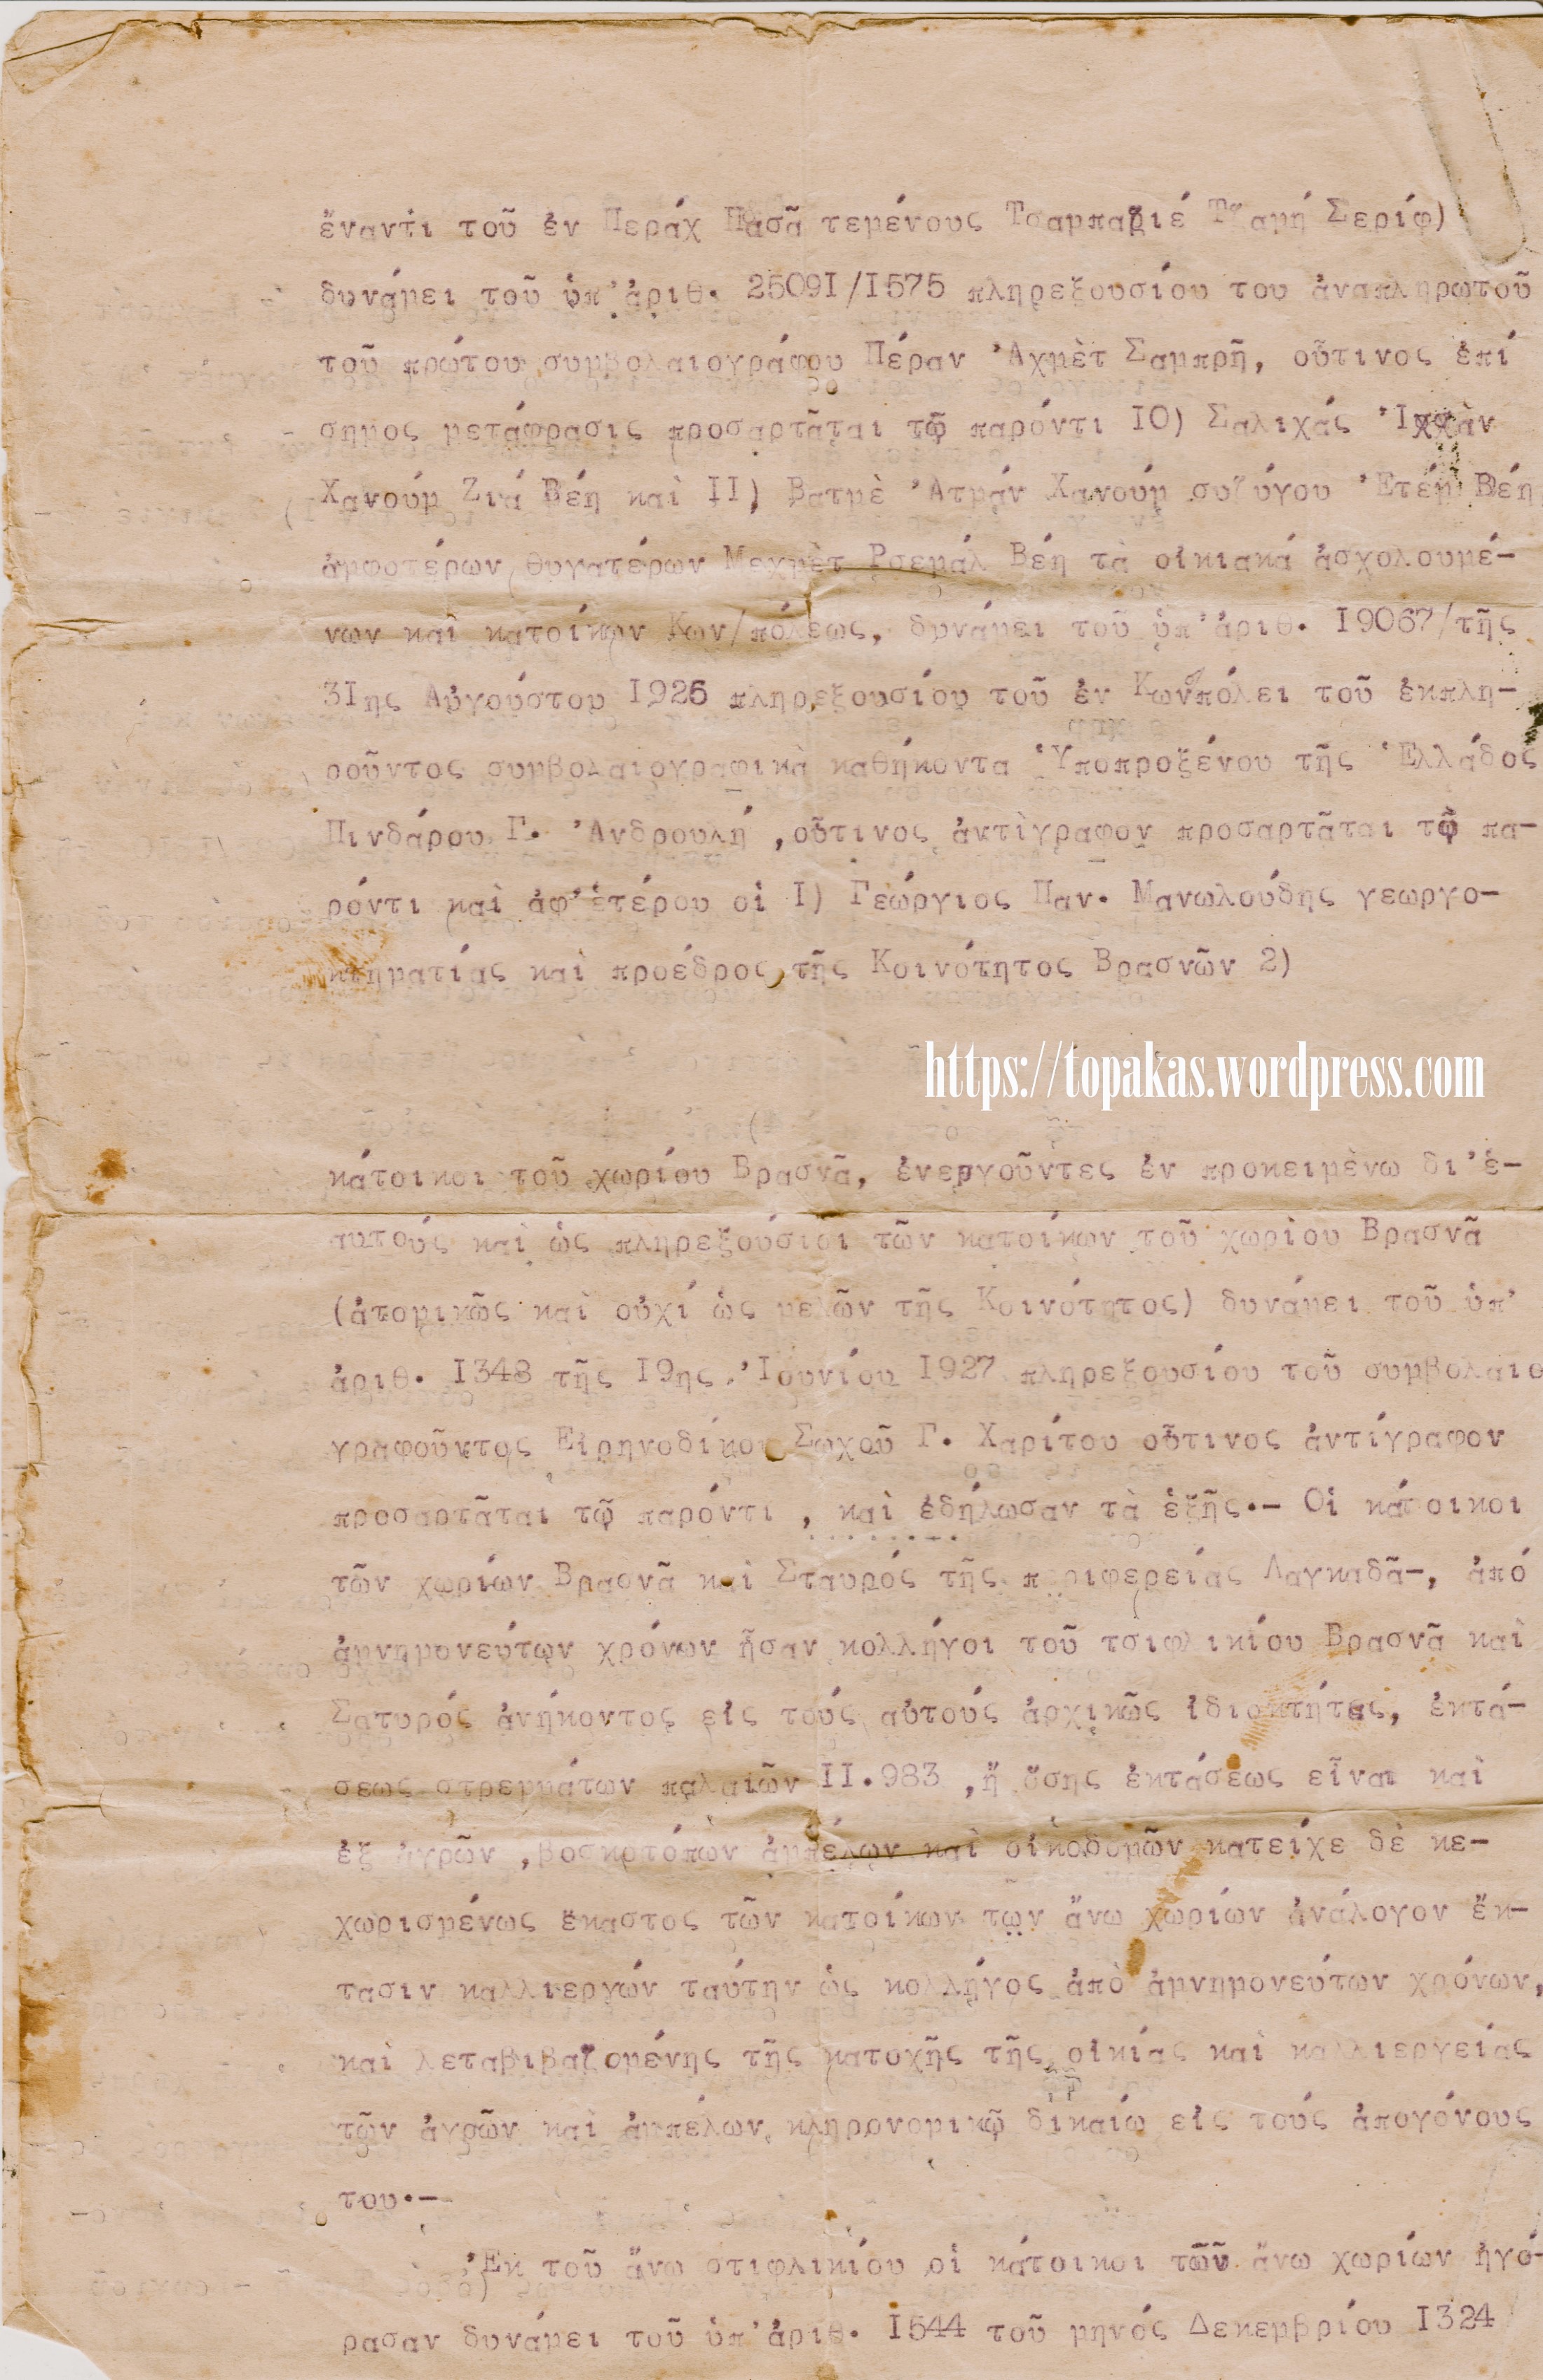 ἔναντι τοῦ ἐν Περάχ Πασᾶ τεμένους Τσαμπαζιέ Τζαμή Σερίφ)
δυνάμει τοῦ ὑπ'ἀριθ. 25091/1575 πληρεξουσίου του ἀναπληρωτοῦ
τοῦ πρώτου συμβολαιογράφου Πέραν 'Αχμὲτ Σαμπρῆ, οὗτινος ἐπί
σημος μετάφρασις προσαρτᾶται τῷ παρόντι 10) Σαλιχάς
Χανούμ Ζιά Βέη καὶ 11) Βατμὲ 'Ατμάν Χανούμ συζύγου 'Ετέμ Βέη
ἀμφοτέρων θυγατέρων Μεχμὲτ Ρσεμάλ Βέη τὰ οἰκιακά ἀσχολουμέ-
νων καὶ κατοίκων Κων/πόλεως, δυνάμει τοῦ ὑπ'ἀριθ. 19067/τῆς
31ης Αὐγούστου 1926 πληρεξουσίου τοῦ ἐν Κωνπόλει τοῦ ἐκπλη-
ροῦντος συμβολαιογραφικὰ καθήκοντα 'Υποπροξένου τῆς 'Ελλάδος
Πινδάρου Γ. 'Ανδρουλή ,οὗτινος ἀντὶγραφον προσαρτᾶται τῷ πα-
ρόντι καὶ ἀφ'ἑτέρου οἱ 1) Γεώργιος Παν. Μανωλούδης γεωργο-
κτηματίας καὶ προέδρος τῆς Κοινότητος Βρασνῶν 2)
https://topakas.wordpress.com
κάτοικοι τοῦ χωρίου Βρασνᾶ, ἐνεργοῦντες ἐν προκειμὲνω δι'ἑ-
αυτούς καὶ ὡς πληρεξούσιοι τῶν κατοίκων τοῦ χωρὶου Βρασνᾶ
(ἀτομικῶς καὶ οὐχί ὡς μελῶν τῆς Κοινότητος) δυνάμει τοῦ ὑπ'
ἀριθ. 1348 τῆς 19ης 'Ιουνίου 1927 πληρεξουσίου τοῦ συμβολαιο
γραφοῦντος Εἰρηνοδίκου Σωχοῦ Γ. Χαρίτου οὗτινος ἀντίγραφον
προσαρτᾶται τῷ παρόντι , καὶ ἐδήλωσαν τὰ ἑξῆς.- Οἱ κάτοικοι
τῶν χωρίων Βρασνᾶ καὶ Σταυρός τῆς περιφερείας Λαγκαδᾶ-, ἀπό
ἀμνημονεύτων χρόνων ἦσαν κολλήγοι τοῦ τσιφλικίου Βρασνᾶ καὶ
Σατυρός ἀνήκοντος εἰς τούς αὐτούς ἀρχικῶς ἰδιοκτήτας, ἐκτά-
σεως στρεμμάτων παλαιῶν 11.983 ,ἤ ὅσης ἐκτάσεως εἶναι καὶ
ἐξ ἀγρῶν ,βοσκοτόπων ἀμπέλων καὶ οἰκοδομῶν κατείχε δὲ κε-
χωρισμένως ἕκαστος τῶν κατοίκων τῶν ἄνω χωρίων ἀνάλογον ἔκ-
τασιν καλλιεργών ταύτην ὡς κολλήγος ἀπὸ ἀμνημονεύτων χρόνων,
καὶ λεταβιβαζομένης τῆς κατοχῆς τῆς οἰκίας καὶ καλλιεργείας
τῶν ἀγρῶν καὶ ἀμπέλων κληρονομικῷ δικαίω εἰς τούς ἀπογόνους
του.-
'Εκ τοῦ ἄνω στιφλικίου οἱ κάτοικοι τῶν ἄνω χωρίων ἠγό-
ρασαν δυνάμει τοῦ ὑπ'ἀριθ. 1544 τοῦ μηνός Δεκεμβρίου 1324